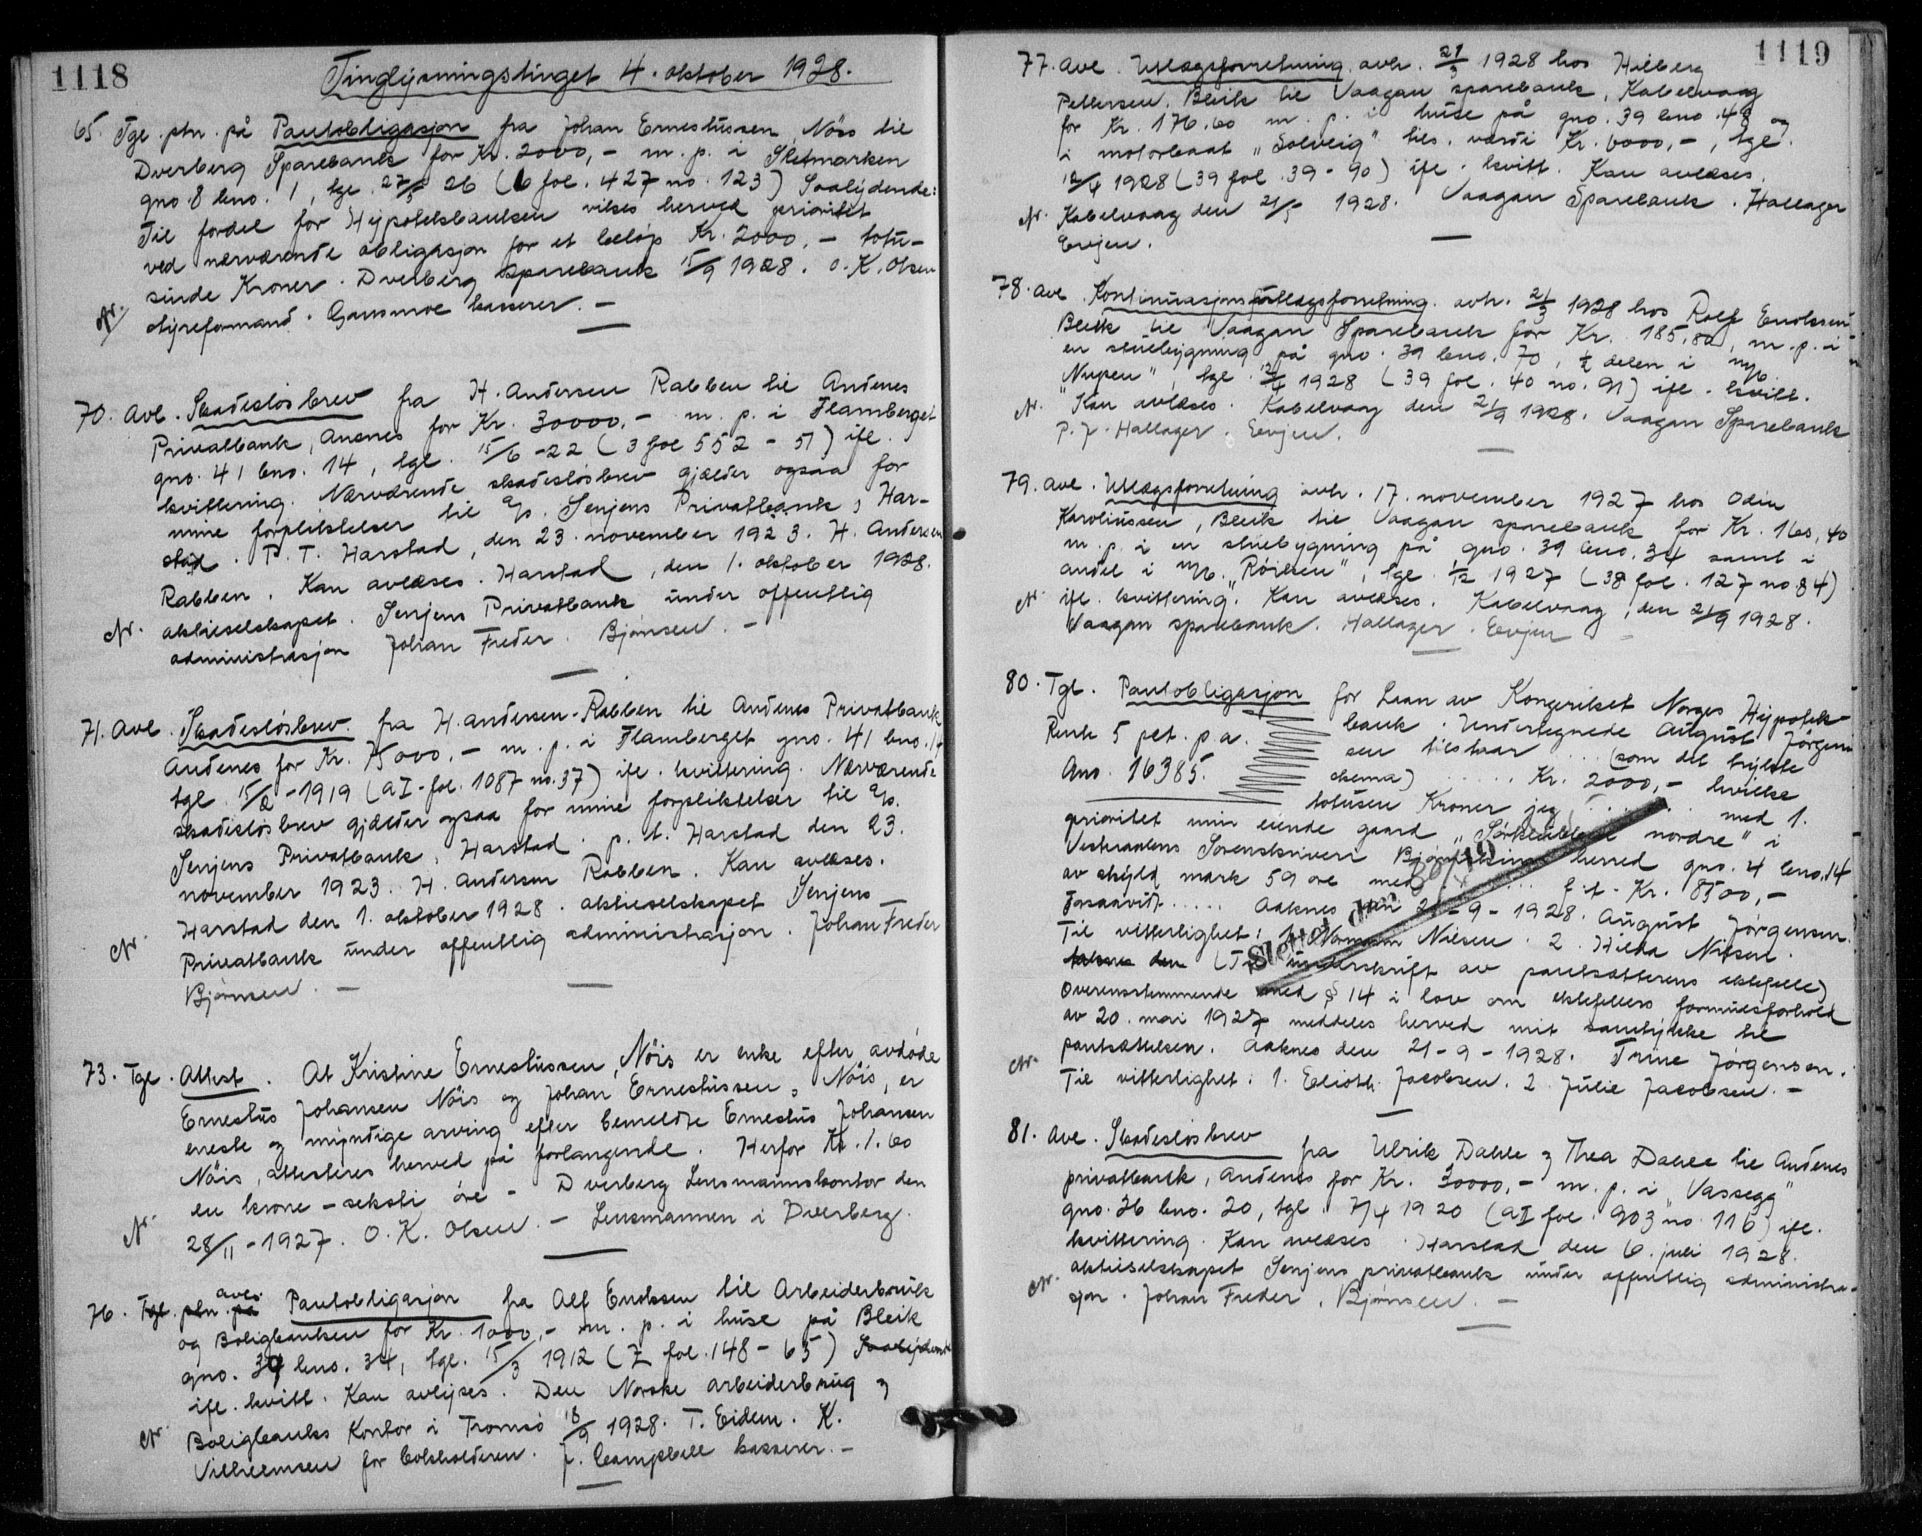 1118
Tinglysningstinget 4. oktober 1928.
65. Tgl. ptn. på Pantobligasjon fra Johan Ernestussen, Nöss til
Dverberg Sparebank for Kr. 2000,- m. p. i Sletmarken
gno. 8 bno. 1, tgl. 27/5 26 (6 fol. 427 no. 123) Saalydende:
Til fordel for Hypotekbanken vikes herved prioritet
ved nærværende obligasjon for et beløp Kr. 2000,- totu-
sinde Kroner. Dverberg Sparebank 15/9 1928. O. K. Olsen
styreformand. Gausmoe kasserer. -
70. Avl. Skadesløsbrev fra H. Andersen Rabben til Andenes
Privatbank, Andnes for Kr. 30000,- m. p. i Flamberget
gno. 41 bno. 14, tgl. 15/6 -22 (3 fol 552 - 51) ifl.
kvittering. Nærværende skadesløsbrev gjælder ogsaa for
mine forpliktelser til A/S. Senjens Privatbank, Har-
stad. P. T. Harstad, den 23. november 1923. H. Andersen
Rabben. Kan avlæses. Harstad, den 1. oktober 1928.
aktieselskapet Senjens Privatbank under offentlig
administrasjon Johan Freder. Bjørnsen. -
71. Avl. Skadesløsbrev fra H. Andersen-Rabben til Andenes Privatbank
Andenes for Kr. 75000,- m. p. i Flamberget gno. 41 bno. 14
tgl. 15/2 -1919 (a I - fol. 1087 no. 37) ifl. kvittering. Nærværende
skadesløsbrev gjælder ogsaa for mine forpliktelser til A/S.
Senjens Privatbank, Harstad. p. t. Harstad den 23.
november 1923. H. Andersen Rabben. Kan avlæses.
Harstad den 1. oktober 1928. aktieselskapet Senjens
Privatbank under offentlig administrasjon. Johan Freder
Bjørnsen. -
73. Tgl. Attest. At Kristine Ernestussen, Nöis er enke efter avdøde
Ernestus Johansen Nöis og Johan Ernestussen, Nöis, er
eneste og myndige arving efter bemeldte Ernestus Johansen
Nöis, attesteres herved på forlangende. Herfor Kr. 1.60
en krone - seksti öre - Dverberg Lensmannskontor den
28/11 - 1927. O. K. Olsen. - Lensmannen i Dverberg.
76. Tgl. ptn. på avl. Pantobligasjon fra Alf Enoksen til Arbeiderbruk
og Boligbanken for Kr. 1000,- m. p. i huse på Bleik
gno. 39 bno. 34, tgl. 15/3 1912 (Z fol. 148 - 65) Saalydende
ifl. kvitt. Kan avlyses. Den Norske arbeiderbrug og
Boligbanks Kontor i Tromsö 18/9 1928. T. Eidem. K.
Vilhelmsen for bokholderen. J. Campbell kasserer. -
1119
77. Avl. Utlægsforretning avh. 21/3 1928 hos Hilberg
Pettersen, Bleik til Vaagan sparebank, Kabelvaag
for Kr. 176.60 m. p. i huse på gno. 39 bno. 48 og
i motorbaat "Solveig" tils. værdi Kr. 6000,-, tgl.
12/4 1928 (39 fol. 39 - 90) ifl. kvitt. Kan avlæses.
Kabelvaag den 21/9 1928. Vaagan Sparebank. Hallager
Evjen.
78. Avl. Kontinuasjonsutlægsforretning avh. 21/3 1928 hos Rolf Enoksen
Bleik til Vaagan Sparebank for Kr. 185,80, m. p. i
en stuebygning på gno. 39 bno. 70, 1/2 delen i m/b
"Nupen", tgl. 12/4 1928 (39 fol. 40 no. 91) ifl. kvitt.
Kan avlæses. Kabelvaag den 21/9 1928. Vaagan Sparebank
P. J. Hallager. Evjen.
79. Avl. Utlægsforretning avh. 17. november 1927 hos Odin
Karoliussen, Bleik til Vaagan sparebank for Kr. 160,40
m. p. i en stuebygning på gno. 39 bno. 34 samt i
andel i m/b. "Röiken", tgl. 1/12 1927 (38 fol. 127 no 84)
ifl. kvittering. Kan avlæses. Kabelvaag, den 21/9 1928.
Vaagan sparebank. Hallager. Evjen -
80. Tgl. Pantobligasjon for Laan av Kongeriket Norges Hypotek-
Rente 5 pct. p. a. bank. Undertegnede August Jörgen-
Ans. 16385. sen tilstaar ... (som det trykte
skema) ..... Kr. 2000,- hvilke
totusen Kroner jeg ..... med 1.
prioritet min eiende gaard "nordre" i
Vesteraalens Sorenskriveri Bjørnskinn herred gno. 4 bno. 14
av skyld mark 59 øre med ..... Kr. 8500,-
Forsaavidt ..... Aaknes den 21-9-1928. August Jörgensen.
Til vitterlighet: 1. Normann Nilsen. 2. Hilda Nilsen.
Aaknes den (Til underskrift av pantsætterens ektefelle)
Overensstemmende med § 14 i lov om ektefellers formuesforhold
av 20. mai 1927 meddeles herved mit samtykke til
pantsættelsen. Aaknes den 21-9-1928. Trine Jörgensen.
Til vitterlighet: 1. Elioth. Jacobsen. 2. Julie Jacobsen. -
Slettet den
81. Avl. Skadesløsbrev fra Ulrik Dahle og Thea Dahle til Andenes
privatbank, Andenes for Kr. 30000,- m. p. i "Vassegg"
gno. 36 bno. 20, tgl. 7/4 1920 (a II fol. 903 no. 116) ifl.
kvittering. Kan avlæses. Harstad den 6. juli 1928.
aktieselskapet Senjens privatbank under offentlig administra-
sjon. Johan Freder. Bjørnsen. -